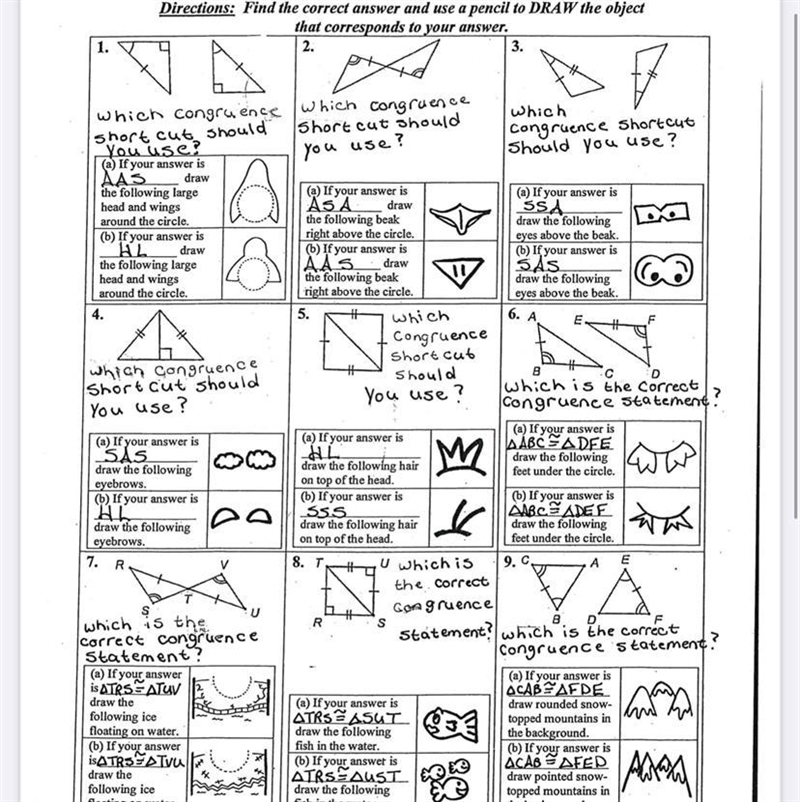 Directions: Find the correct answer and use a pencil to DRAW the object
that corresponds to your answer.
1.
Which congruence
short cut should
you use?
(a) If your answer is
AAS draw
the following large
head and wings
around the circle.
(b) If your answer is
HL draw
the following large
head and wings
around the circle.
2.
Which congruence
short cut should
you use?
(a) If your answer is
ASA draw
the following beak
right above the circle.
(b) If your answer is
AAS draw
the following beak
right above the circle.
3.
Which
congruence shortcut
should you use?
(a) If your answer is
SSA
draw the following
eyes above the beak.
(b) If your answer is
SAS
draw the following
eyes above the beak.
4.
Which Congruence
Short cut should
you use?
(a) If your answer is
SAS
draw the following
eyebrows.
(b) If your answer is
HL
draw the following
eyebrows.
5.
Which
Congruence
Short cut
Should
You use?
(a) If your answer is
HL
draw the following hair
on top of the head.
(b) If your answer is
SSS
draw the following hair
on top of the head.
6.
A
E
F
B
C
D
Which is the correct
Congruence statement?
(a) If your answer is
△ABC≅△DFE
draw the following
feet under the circle.
(b) If your answer is
△ABC≅△DEF
draw the following
feet under the circle.
7.
R
V
S
T
U
Which is the
correct congruence
Statement?
(a) If your answer
is △TRS≅△TUV
draw the
following ice
floating on water.
(b) If your answer
is △TRS≅△TVU
draw the
following ice
8.
T
U
R
S
which is
the correct
Congruence
Statement?
(a) If your answer is
△TRS≅△SUT
draw the following
fish in the water.
(b) If your answer is
△TRS≅△UST
draw the following
9.
C
A
E
B
D
F
which is the correct
Congruence statement?
(a) If your answer is
△CAB≅△FDE
draw rounded snow-
topped mountains in
the background.
(b) If your answer is
△CAB≅△FED
draw pointed snow-
topped mountains in